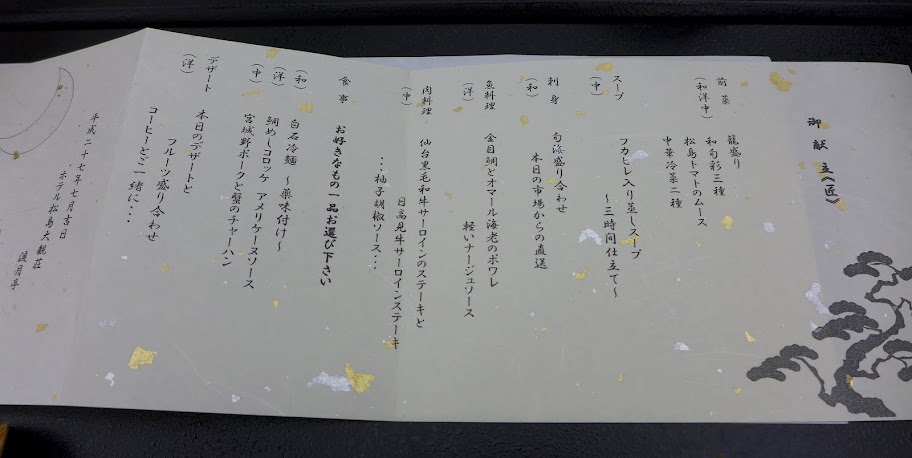 御献立《匠》
前菜
（和洋中）
籠盛り
和旬彩三種
松島トマトのムース
中華冷菜二種
スープ
（中）
フカヒレ入り蒸しスープ
～三時間仕立て～
刺身
（和）
旬海盛り合わせ
本日の市場からの直送
魚料理
（洋）
金目鯛とオマール海老のポワレ
軽いナージュソース
肉料理
（中）
仙台黒毛和牛サーロインのステーキと
日高見牛サーロインステーキ
・・・柚子胡椒ソース・・・
食事
お好きなもの一品お選び下さい
（和）
白石冷麺 ～薬味付け～
（洋）
鯛めしコロッケ アメリケーヌソース
（中）
宮城野ポークと蟹のチャーハン
デザート
（洋）
本日のデザートと
フルーツ盛り合わせ
コーヒーとご一緒に・・・
平成二十七年七月吉日
ホテル松島大観荘
渡月亭